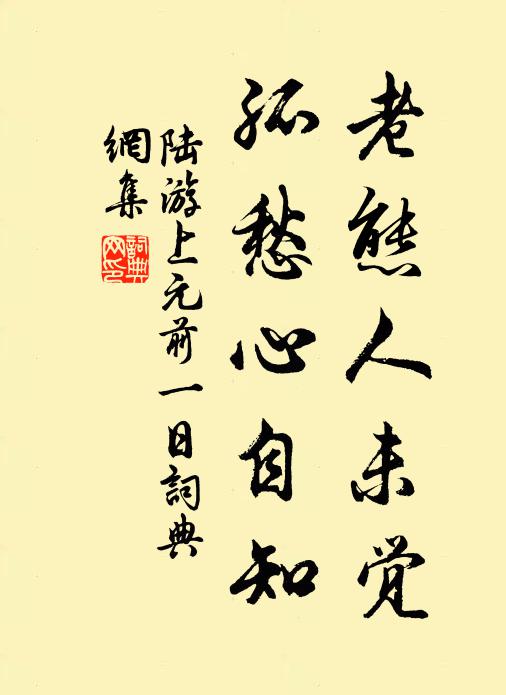 老態人未觉
孤愁心自知
陆游上元前一日詞典
網集
詞典网印